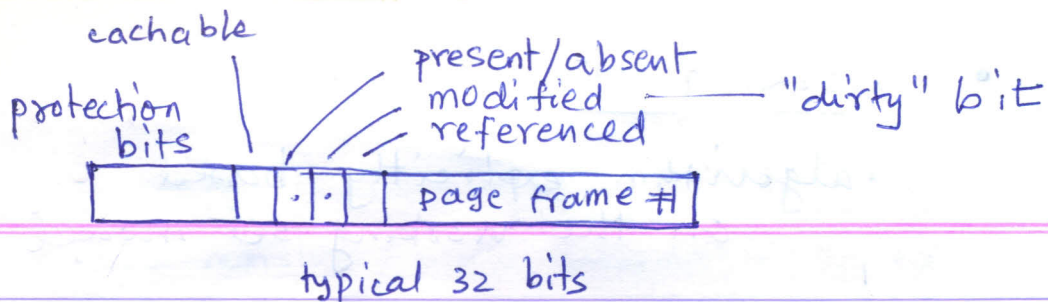 cachable
present/absent
modified
"dirty" bit
referenced
protection
bits
page frame #
typical 32 bits